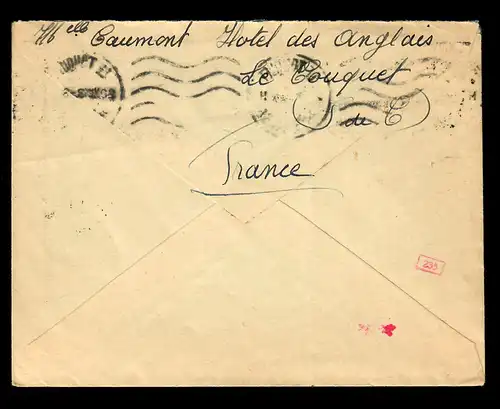 Mlle Caumont Hotel des Anglais
Le Touquet
P de C
France
235